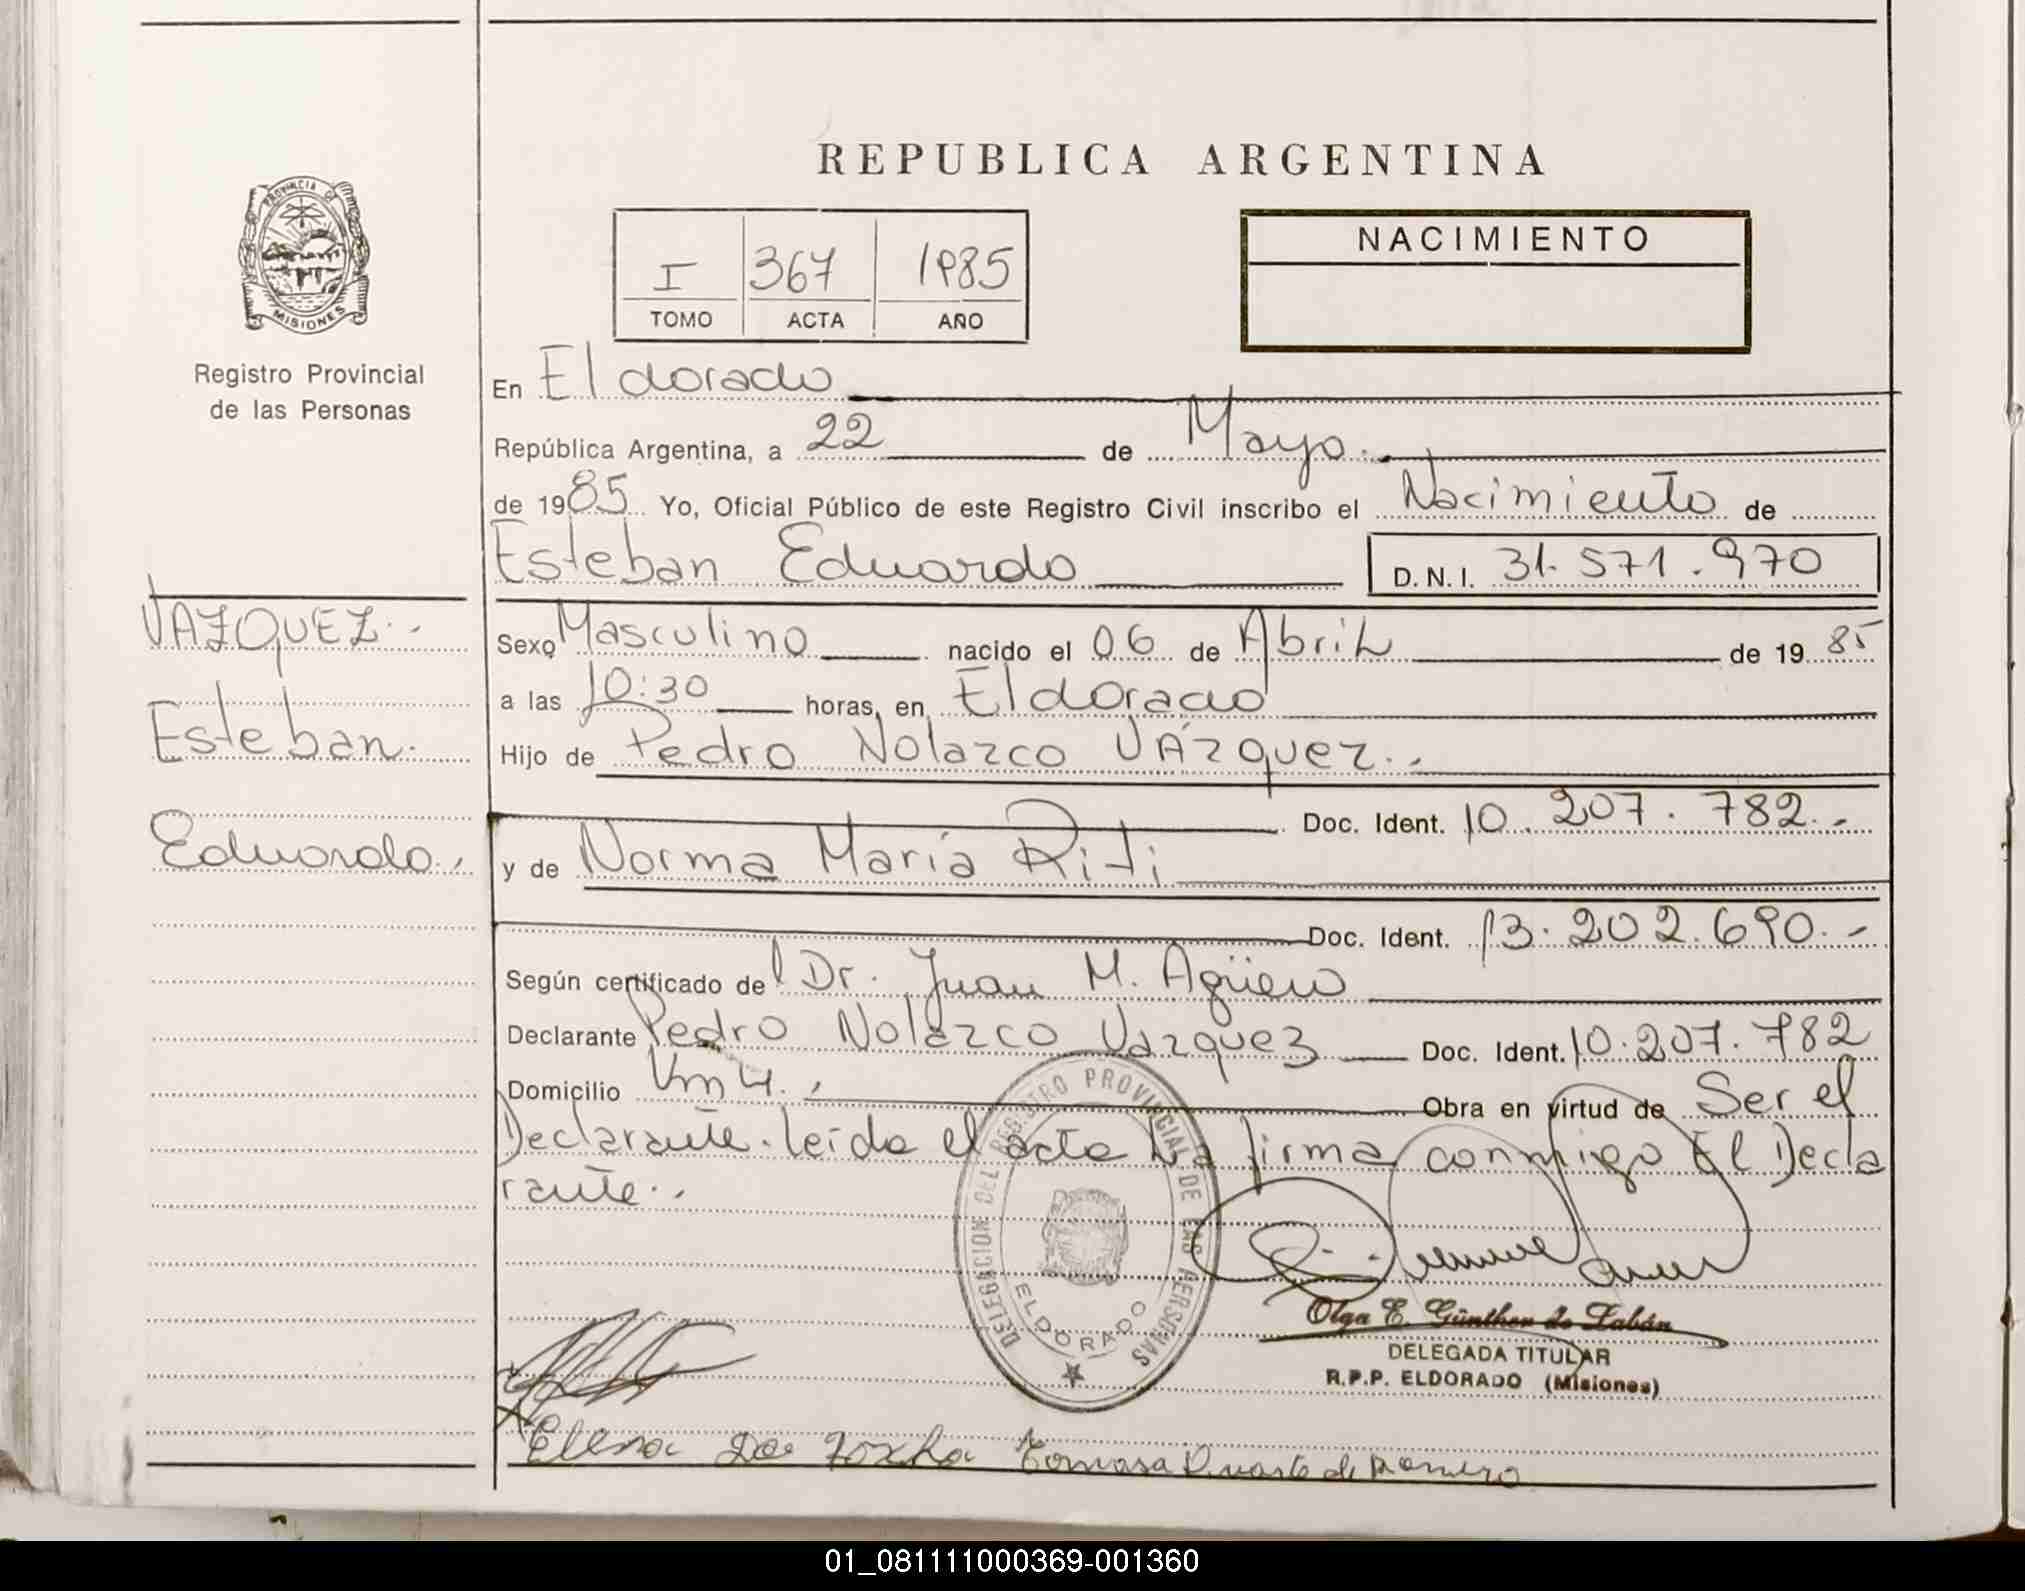 REPUBLICA ARGENTINA
PROVINCIA DE MISIONES
Registro Provincial
de las Personas
I 367 1985
TOMO ACTA AÑO
NACIMIENTO
En Eldorado
República Argentina, a 22 de Mayo.
de 1985 Yo, Oficial Público de este Registro Civil inscribo el Nacimiento de
Esteban Eduardo D.N.I. 31.571.970
VAZQUEZ.-
Esteban.
Eduardo.-
Sexo Masculino nacido el 06 de Abril de 1985
a las 10:30 horas, en Eldorado
Hijo de Pedro Nolazco VÁzquez.-
Doc. Ident. 10.207.782.-
y de Norma María Riti
Doc. Ident. 13.202.690.-
Según certificado del Dr. Juan M. Agüero
Declarante Pedro Nolazco Vazquez Doc. Ident. 10.207.782
Domicilio Km 4.- Obra en virtud de Ser el
Declarante. leida el acta la firma conmigo El Decla
rante.-
DELEGACION DEL REGISTRO PROVINCIAL DE LAS PERSONAS
ELDORADO
Olga E. Günther de Labán
DELEGADA TITULAR
R.P.P. ELDORADO (Misiones)
Elena Da Tomasa Duarte de Romero
01_081111000369-001360